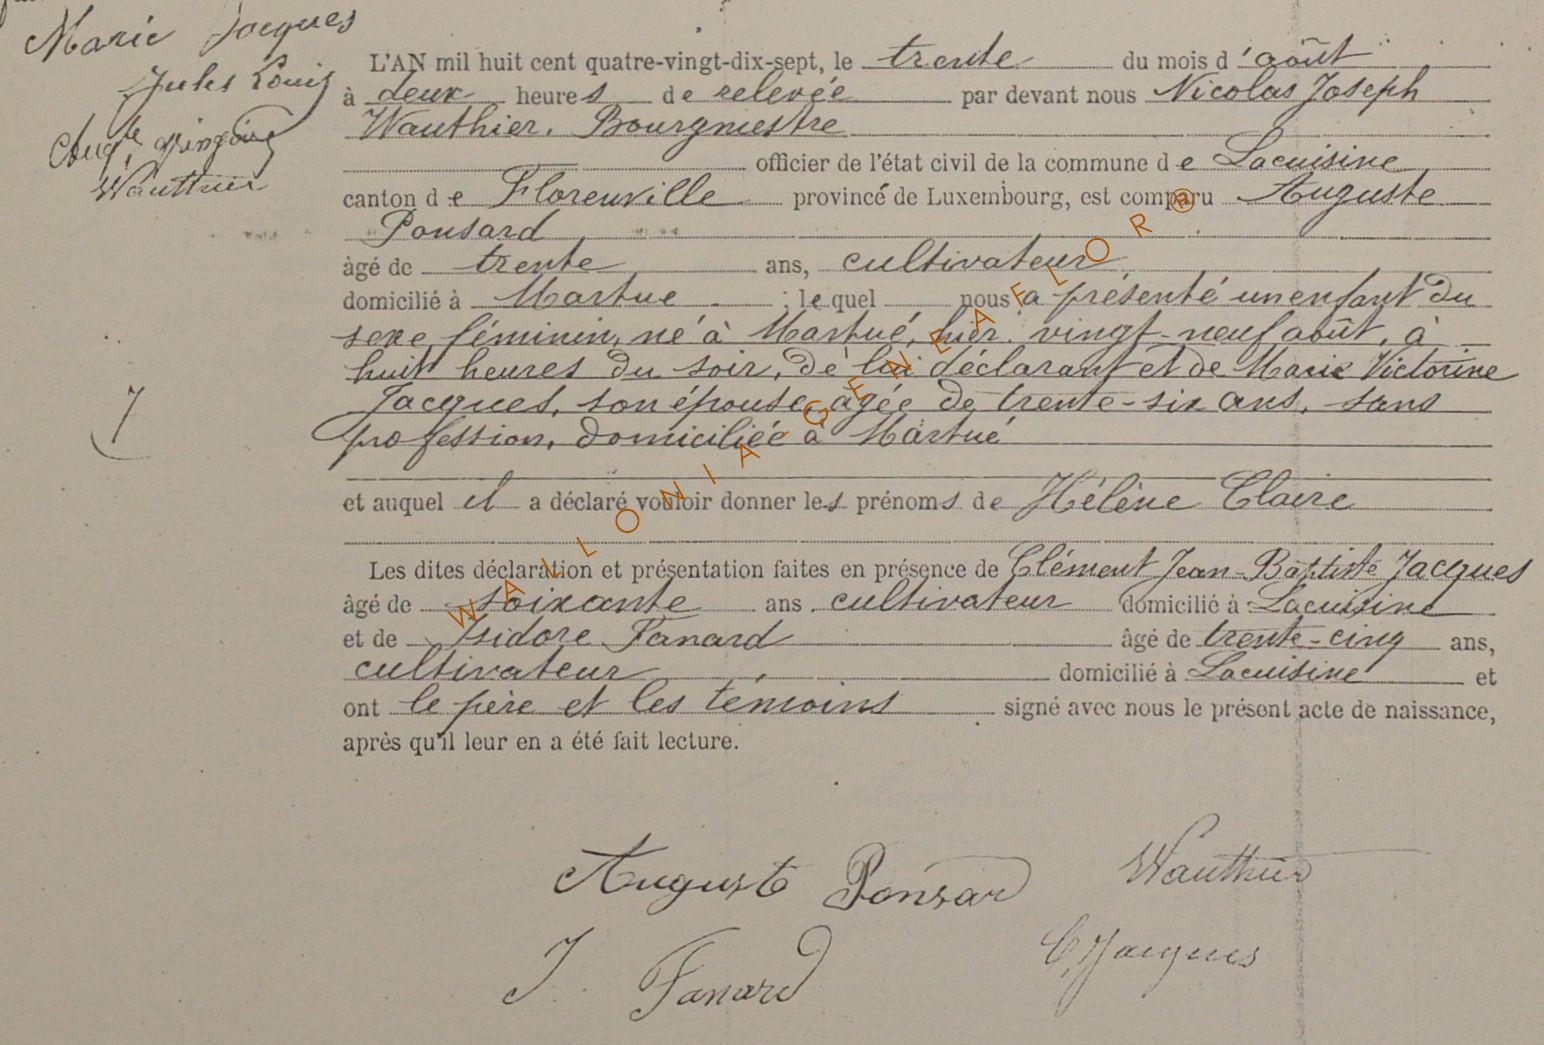 Marie Jacques
Jules Louis
Augte
Wauthier
L'AN mil huit cent quatre-vingt-dix-sept, le trente du mois d'août
à deux heures de relevée par devant nous Nicolas Joseph
Wauthier, Bourgmestre
officier de l'état civil de la commune de Lacuisine
canton de Florenville province de Luxembourg, est comparu Auguste
Ponsard
âgé de trente ans, cultivateur
domicilié à Martué ; lequel nous a présenté un enfant du
sexe féminin, né à Martué, hier vingt-neuf août, à
huit heures du soir, de lui déclarant et de Marie Victorine
Jacques, son épouse, agée de trente-six ans, sans
profession, domiciliée à Martué
et auquel il a déclaré vouloir donner les prénoms de Hélène Claire
Les dites déclaration et présentation faites en présence de Clément Jean-Baptiste Jacques
âgé de soixante ans, cultivateur domicilié à Lacuisine
et de Isidore Fanard âgé de trente-cinq ans,
cultivateur domicilié à Lacuisine et
ont le père et les témoins signé avec nous le présent acte de naissance,
après qu'il leur en a été fait lecture.
7
Auguste Ponsard Wauthier
J. Fanard C. Jacques
WALLONIA GENEAFLOR®